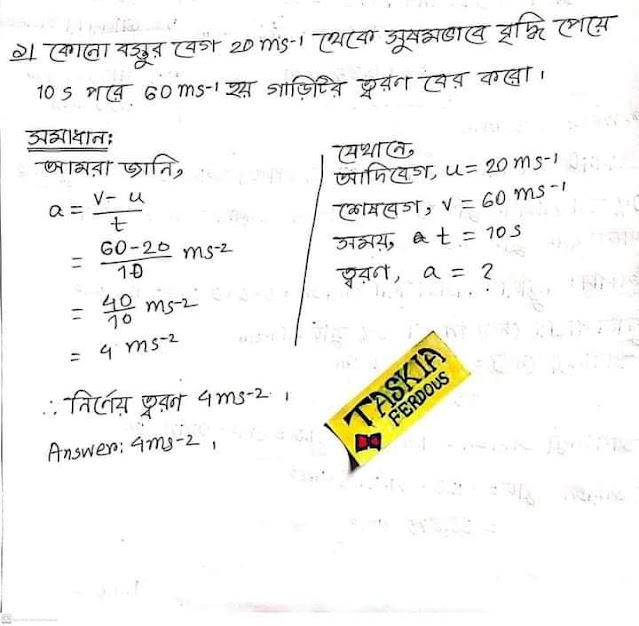 ২। কোনো বস্তুর বেগ 20 ms-1 থেকে সুষমভাবে বৃদ্ধি পেয়ে
10 s পরে 60 ms-1 হয় গাড়িটির ত্বরণ বের করো।
সমাধান:
আমরা জানি,
a = v- u / t
= 60-20 / 10 ms-2
= 40 / 10 ms-2
= 4 ms-2
∴ নির্ণেয় ত্বরণ 4ms-2 ।
Answer: 4ms-2 ,
যেখানে,
আদিবেগ, u = 20 ms-1
শেষবেগ, v = 60 ms-1
সময়, t = 10s
ত্বরণ, a = ?
TASKIA
FERDOUS